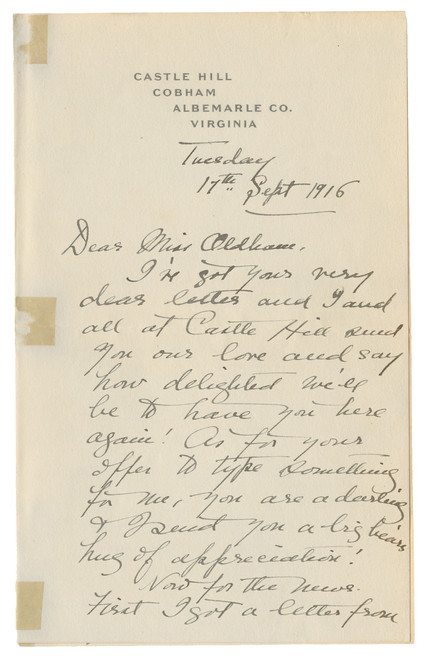 CASTLE HILL
COBHAM
ALBEMARLE CO.
VIRGINIA
Tuesday
17th Sept 1916
Dear Miss Oldham,
I've got your very
dear letter and I and
all at Castle Hill send
you our love and say
how delighted we'll
be to have you here
again! As for your
offer to type something
for me, you are a darling
& I send you a big bears
hug of appreciation!
Now for the news.
First I got a letter from